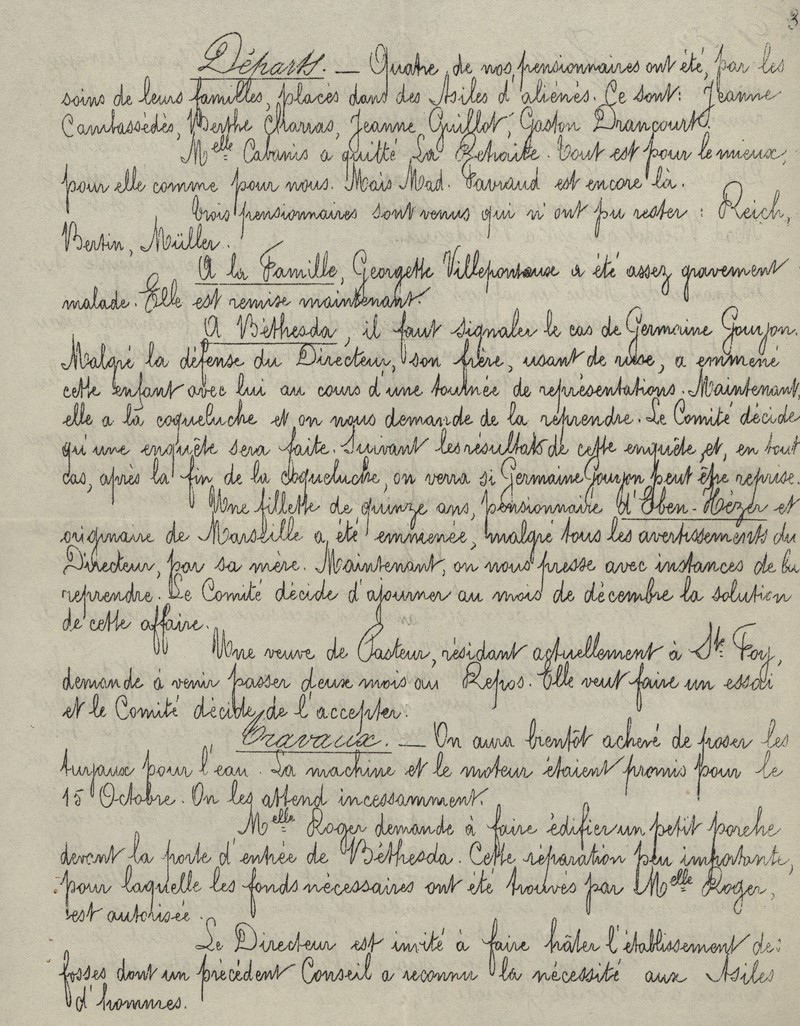 3
Départs. — Quatre de nos pensionnaires ont été, par les
soins de leurs familles, placés dans des Asiles d'aliénés. Ce sont: Jeanne
Cambassédès, Berthe Charras, Jeanne Guillot, Gaston Drancourt.
Melle Cabanis a quitté La Retraite. Tout est pour le mieux,
pour elle comme pour nous. Mais Mad. Favraud est encore là.
Trois pensionnaires sont venus qui n'ont pu rester : Reich,
Bertin, Müller.
A la Famille, Georgette Villepontoux a été assez gravement
malade. Elle est remise maintenant.
A Béthesda, il faut signaler le cas de Germaine Gourjon.
Malgré la défense du Directeur, son frère, usant de ruse, a emmené
cette enfant avec lui au cours d'une tournée de représentations. Maintenant,
elle a la coqueluche et on nous demande de la reprendre. Le Comité décide
qu'une enquête sera faite. Suivant les résultats de cette enquête, et, en tout
cas, après la fin de la coqueluche, on verra si Germaine Gourjon peut être reprise.
Une fillette de quinze ans, pensionnaire d'Eben-Hézer et
originaire de Marseille a été emmenée, malgré tous les avertissements du
Directeur, par sa mère. Maintenant, on nous presse avec instances de la
reprendre. Le Comité décide d'ajourner au mois de décembre la solution
de cette affaire.
Une veuve de Pasteur, résidant actuellement à Ste Foy,
demande à venir passer deux mois au Repos. Elle veut faire un essai
et le Comité décide de l'accepter.
Travaux. — On aura bientôt achevé de poser les
tuyaux pour l'eau. La machine et le moteur étaient promis pour le
15 Octobre. On les attend incessamment.
Melle Roger demande à faire édifier un petit porche
devant la porte d'entrée de Béthesda. Cette réparation peu importante,
pour laquelle les fonds nécessaires ont été trouvés par Melle Roger,
est autorisée.
Le Directeur est invité à faire hâter l'établissement des
fosses dont un précédent Conseil a reconnu la nécessité aux Asiles
d'hommes.